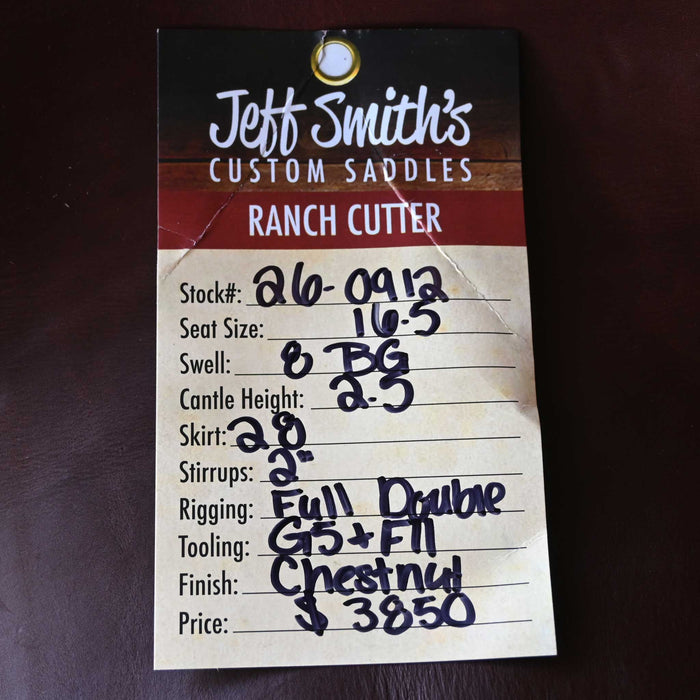 Jeff Smith's
CUSTOM SADDLES
RANCH CUTTER
Stock#: 26-0912
Seat Size: 16.5
Swell: 8 BG
Cantle Height: 2.5
Skirt: 28
Stirrups: 2"
Rigging: Full Double
Tooling: G5+F11
Finish: Chestnut
Price: $ 3850